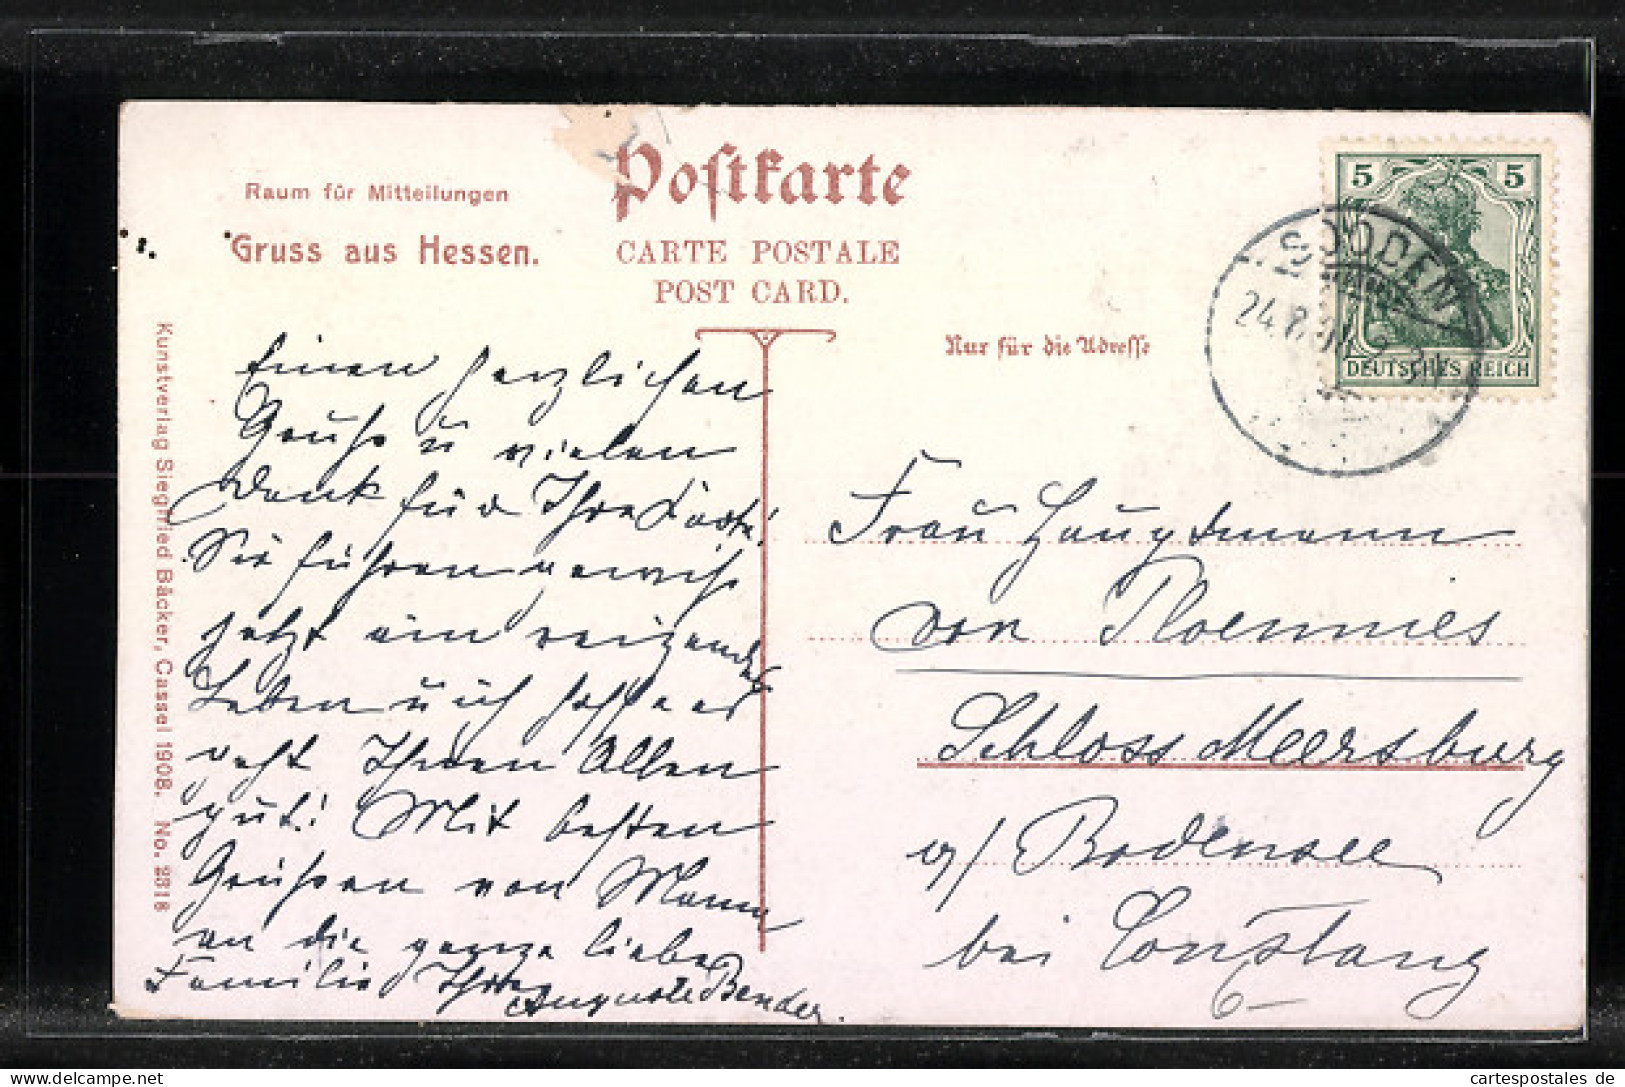 Raum für Mitteilungen
Gruss aus Hessen.
Postkarte
CARTE POSTALE
POST CARD.
Nur für die Adresse
5 5
DEUTSCHES REICH
SOODEN
24.8.
Kunstverlag Siegfried Bäcker, Cassel 1908. No. 2318
Einen herzlichen
Gruß u vielen
Dank für Ihre Karte!
Sie führen gewiß
jetzt ein reizendes
Leben u ich hoffe es
geht Ihnen Allen
gut! Mit besten
Grüßen von Mann
an die ganze liebe
Familie Ihre
Auguste Bender.
Frau Hauptmann
von Ploennies
Schloss Meersburg
a/ Bodensee
bei Constanz
cartespostales de